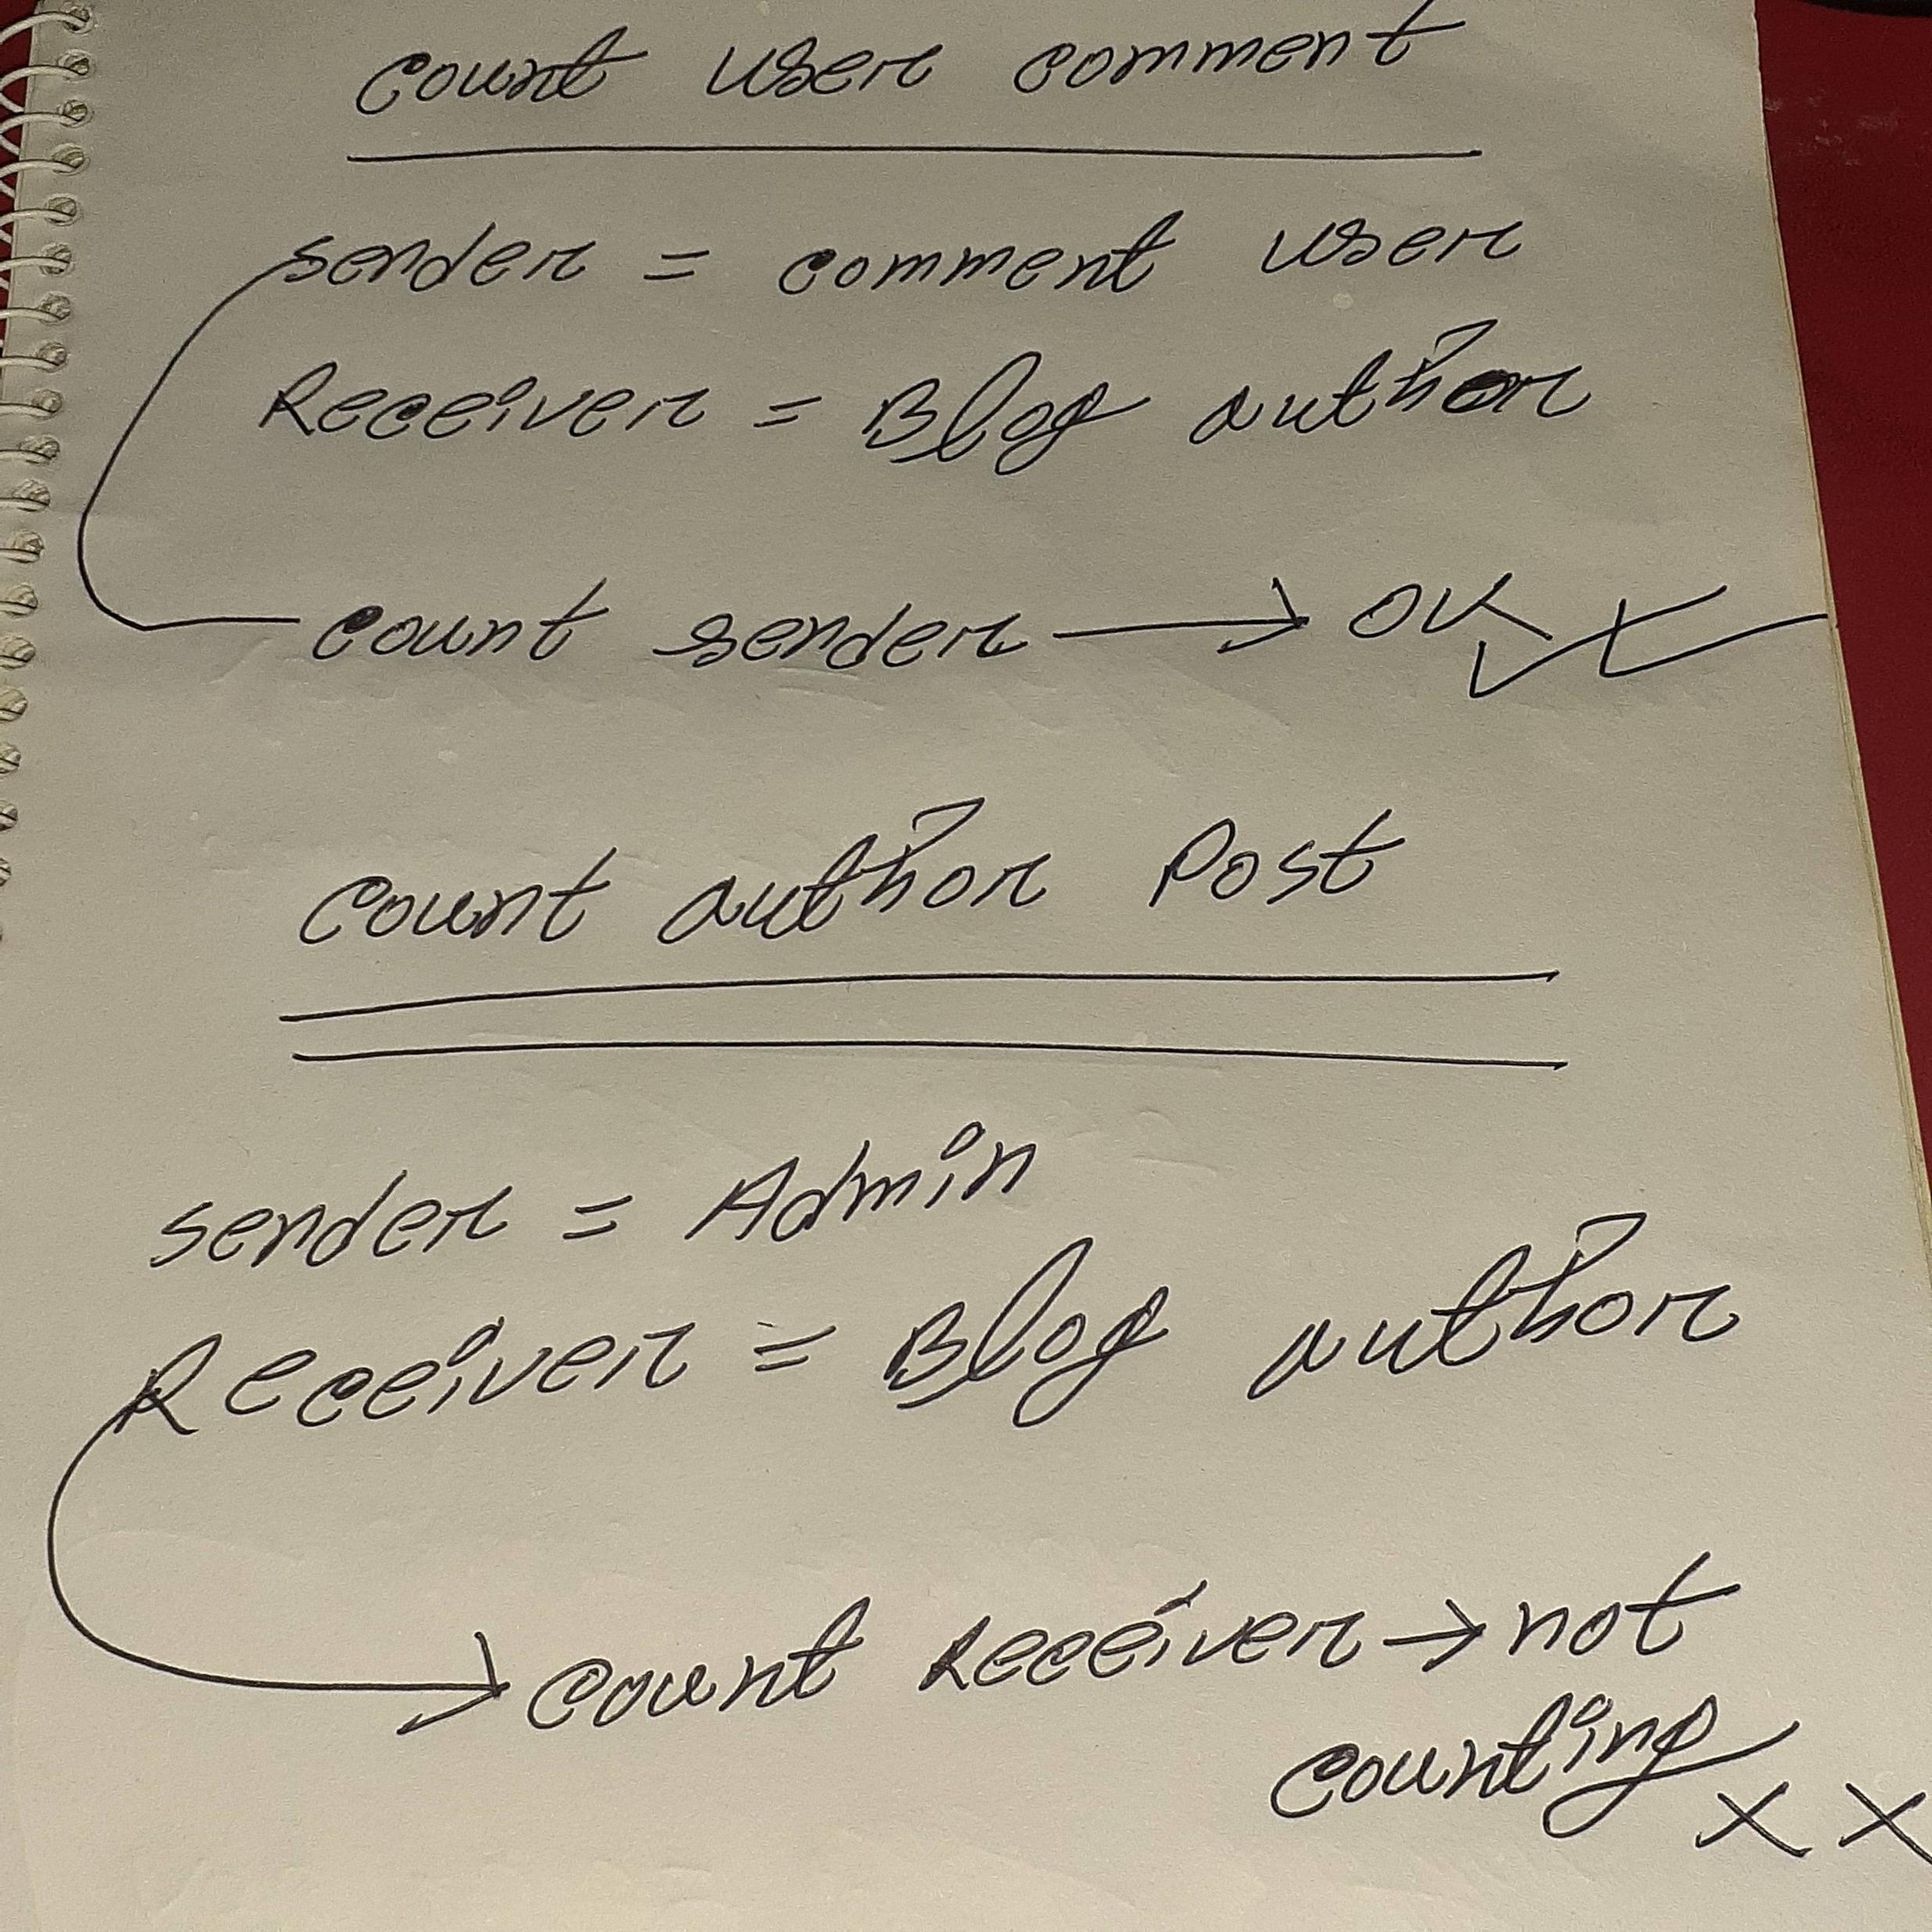 count user comment
sender = comment user
Receiver = Blog author
count sender → OK
count author Post
sender = Admin
Receiver = Blog author
count Receiver → not
counting
x x